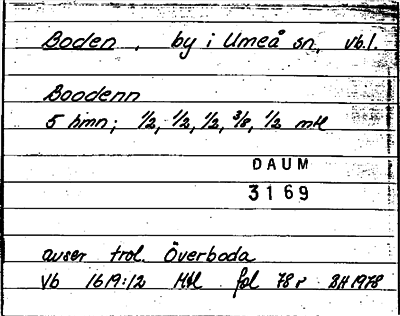 Boden, by i Umeå sn, vb.l.
Boodenn
5 hmn; 1/2, 1/2, 1/2, 3/8, 1/2 mtl
DAUM
3169
avser trol. Överboda
Vb 1619:12 Mtl fol 78r BH 1978